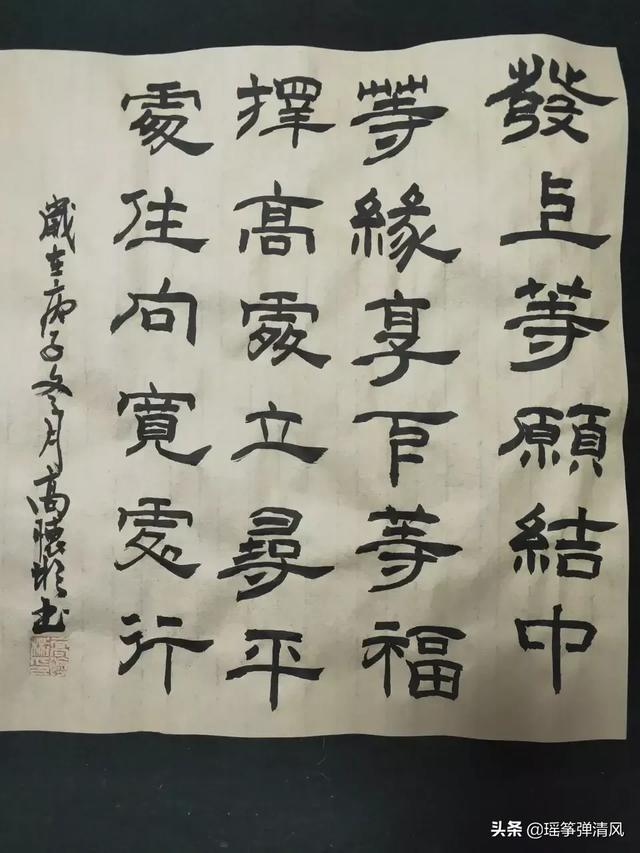 發上等願結中
等緣享下等福
擇高處立尋平
處住向寬處行
歲在庚子冬月高懷书
头条 @瑶筝弹清风